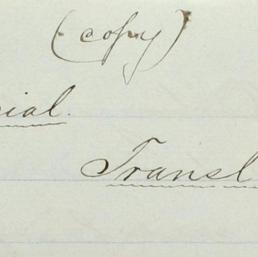 (copy)
ial.
Transl